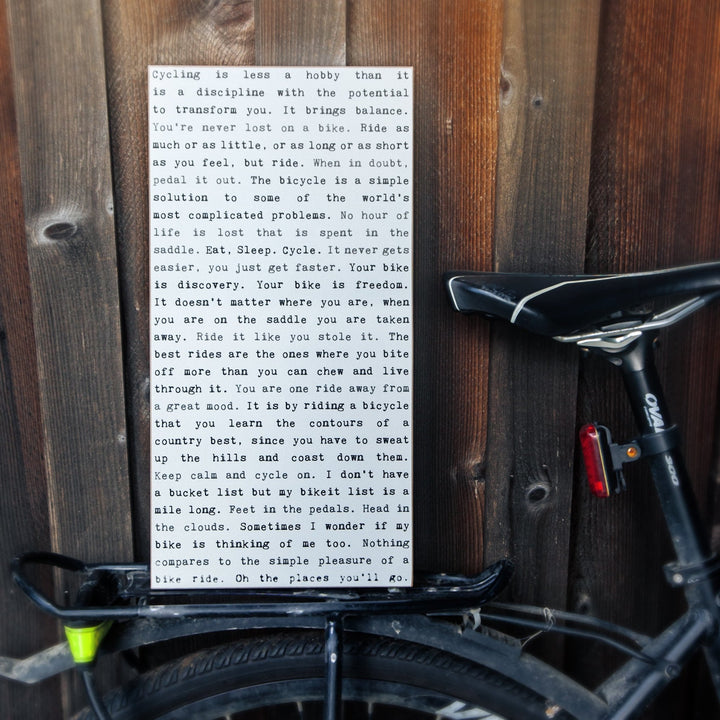 Cycling is less a hobby than it
is a discipline with the potential
to transform you. It brings balance.
You're never lost on a bike. Ride as
much or as little, or as long or as short
as you feel, but ride. When in doubt,
pedal it out. The bicycle is a simple
solution to some of the world's
most complicated problems. No hour of
life is lost that is spent in the
saddle. Eat, Sleep. Cycle. It never gets
easier, you just get faster. Your bike
is discovery. Your bike is freedom.
It doesn't matter where you are, when
you are on the saddle you are taken
away. Ride it like you stole it. The
best rides are the ones where you bite
off more than you can chew and live
through it. You are one ride away from
a great mood. It is by riding a bicycle
that you learn the contours of a
country best, since you have to sweat
up the hills and coast down them.
Keep calm and cycle on. I don't have
a bucket list but my bikeit list is a
mile long. Feet in the pedals. Head in
the clouds. Sometimes I wonder if my
bike is thinking of me too. Nothing
compares to the simple pleasure of a
bike ride. Oh the places you'll go.
OVAL